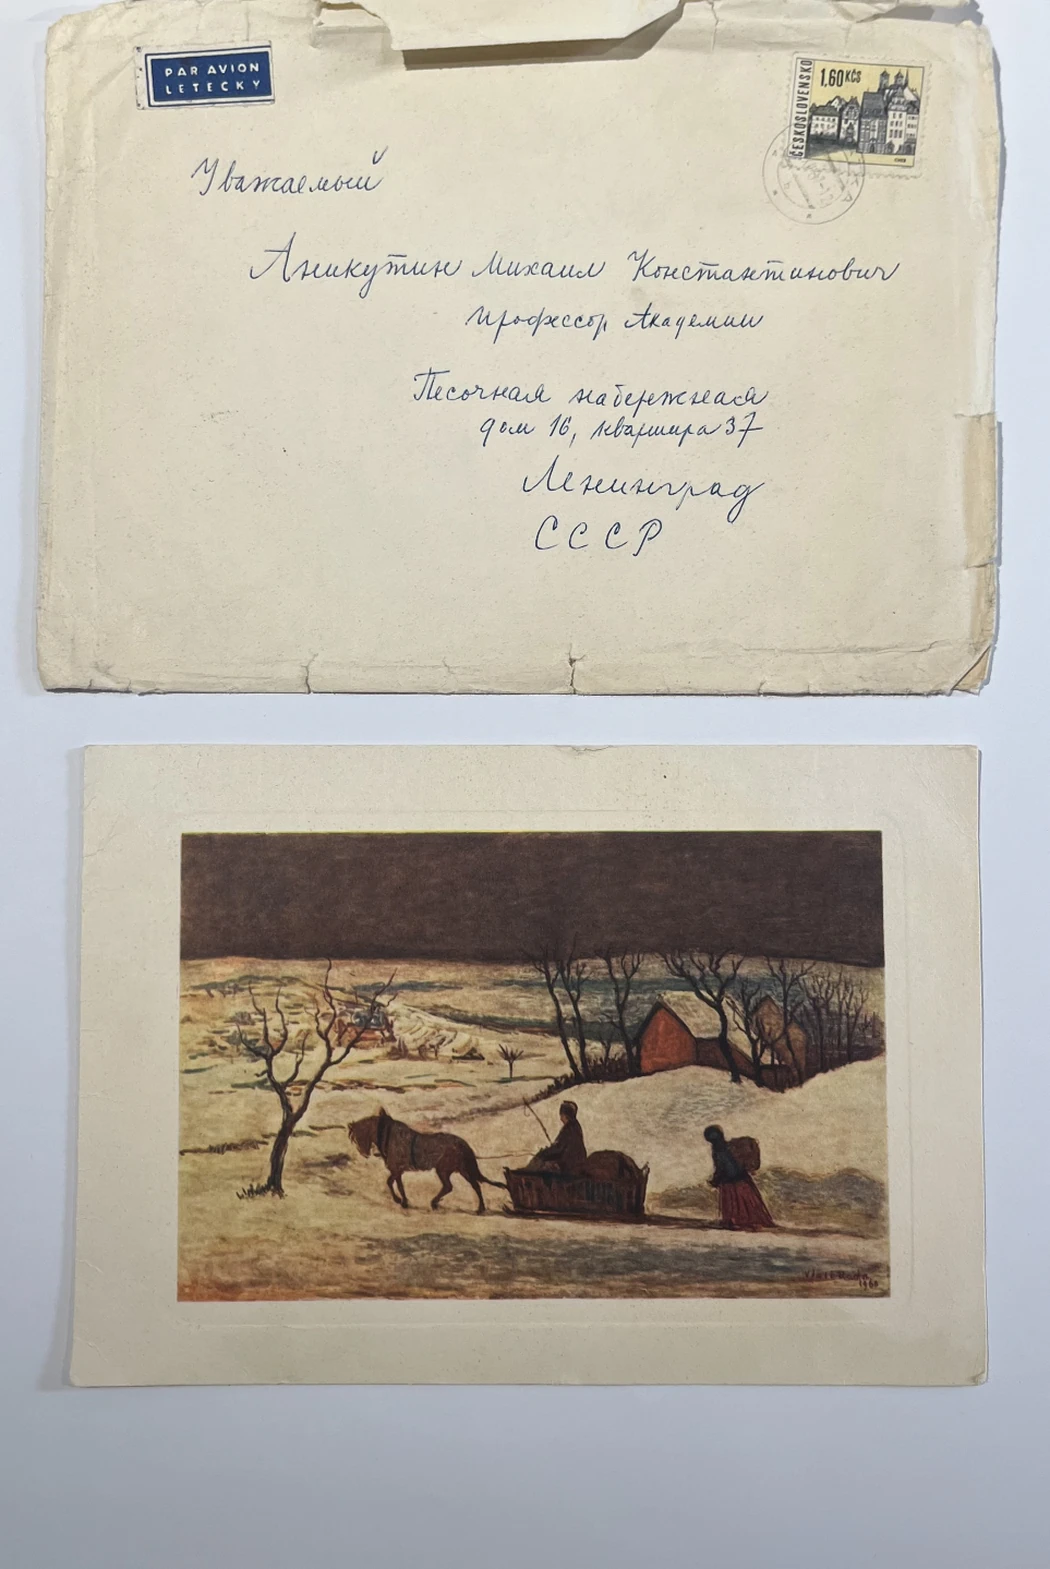 PAR AVION
LETECKY
ČESKOSLOVENSKO
1,60 KČS
CHEB
Уважаемый
Аникутин Михаил Константинович
профессор Академии
Песочная набережная
дом 16, квартира 37
Ленинград
СССР
1960